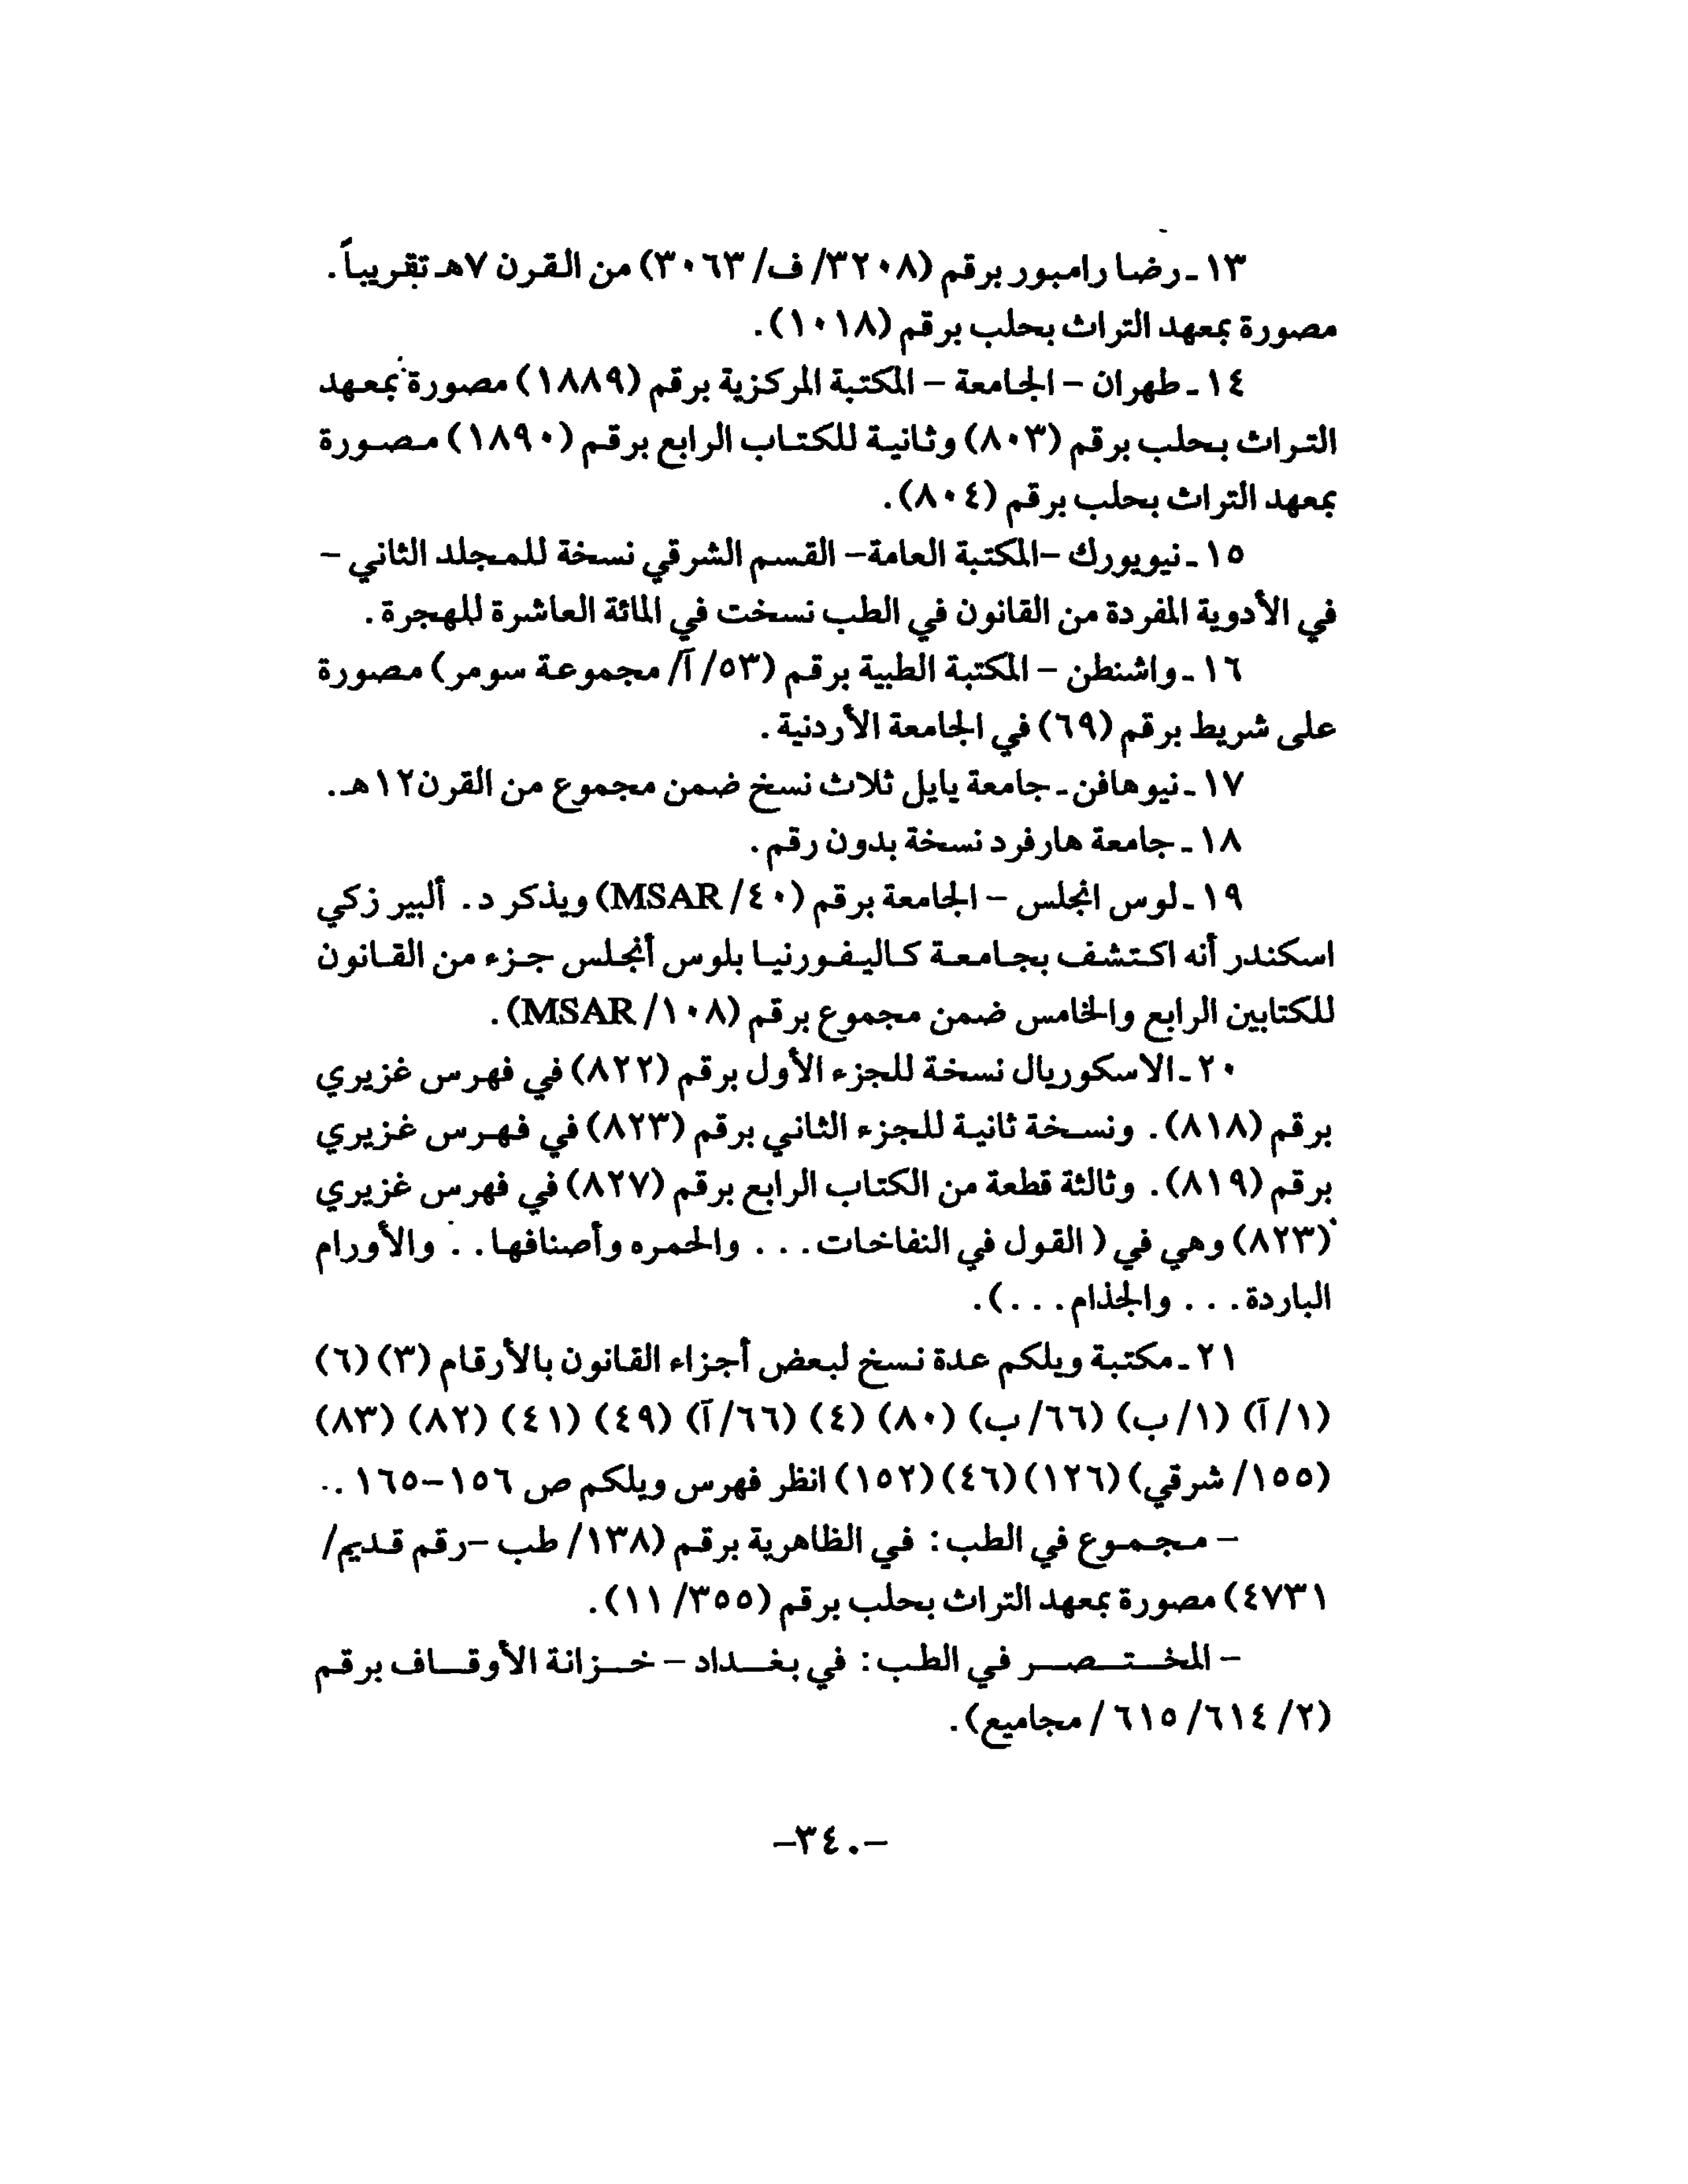 ١٣ـ رضا رامبور برقم (٣٢٠٨/ ف/ ٣٠٦٣) من القرن ٧هـ تقريباً.
مصورة بمعهد التراث بحلب برقم (١٠١٨).
١٤ـ طهران - الجامعة - المكتبة المركزية برقم (١٨٨٩) مصورة بمعهد
التراث بحلب برقم (٨٠٣) وثانية للكتاب الرابع برقم (١٨٩٠) مصورة
بمعهد التراث بحلب برقم (٨٠٤).
١٥ـ نيويورك -المكتبة العامة- القسم الشرقي نسخة للمجلد الثاني -
في الأدوية المفردة من القانون في الطب نسخت في المائة العاشرة للهجرة.
١٦ـ واشنطن - المكتبة الطبية برقم (٥٣/ آ/ مجموعة سومر) مصورة
على شريط برقم (٦٩) في الجامعة الأردنية.
١٧ـ نيوهافن ـ جامعة يايل ثلاث نسخ ضمن مجموع من القرن١٢هـ.
١٨ـ جامعة هارفرد نسخة بدون رقم.
١٩ـ لوس انجلس - الجامعة برقم (٤٠/ MSAR) ويذكر د. ألبير زكي
اسكندر أنه اكتشف بجامعة كاليفورنيا بلوس أنجلس جزء من القانون
للكتابين الرابع والخامس ضمن مجموع برقم (١٠٨/ MSAR).
٢٠ـ الاسكوريال نسخة للجزء الأول برقم (٨٢٢) في فهرس غزيري
برقم (٨١٨). ونسخة ثانية للجزء الثاني برقم (٨٢٣) في فهرس غزيري
برقم (٨١٩). وثالثة قطعة من الكتاب الرابع برقم (٨٢٧) في فهرس غزيري
(٨٢٣) وهي في ( القول في النفاخات... والحمره وأصنافها.. والأورام
الباردة... والجذام...).
٢١ـ مكتبة ويلكم عدة نسخ لبعض أجزاء القانون بالأرقام (٣) (٦)
(١/ آ) (١/ ب) (٦٦/ ب) (٨٠) (٤) (٦٦/ آ) (٤٩) (٤١) (٨٢) (٨٣)
(١٥٥/ شرقي) (١٢٦) (٤٦) (١٥٢) انظر فهرس ويلكم ص ١٥٦-١٦٥..
- مجموع في الطب: في الظاهرية برقم (١٣٨/ طب -رقم قديم/
٤٧٣١) مصورة بمعهد التراث بحلب برقم (٣٥٥/ ١١).
- المختصر في الطب: في بغداد - خزانة الأوقاف برقم
(٢/ ٦١٤/ ٦١٥/ مجاميع).
-٣٤٠-